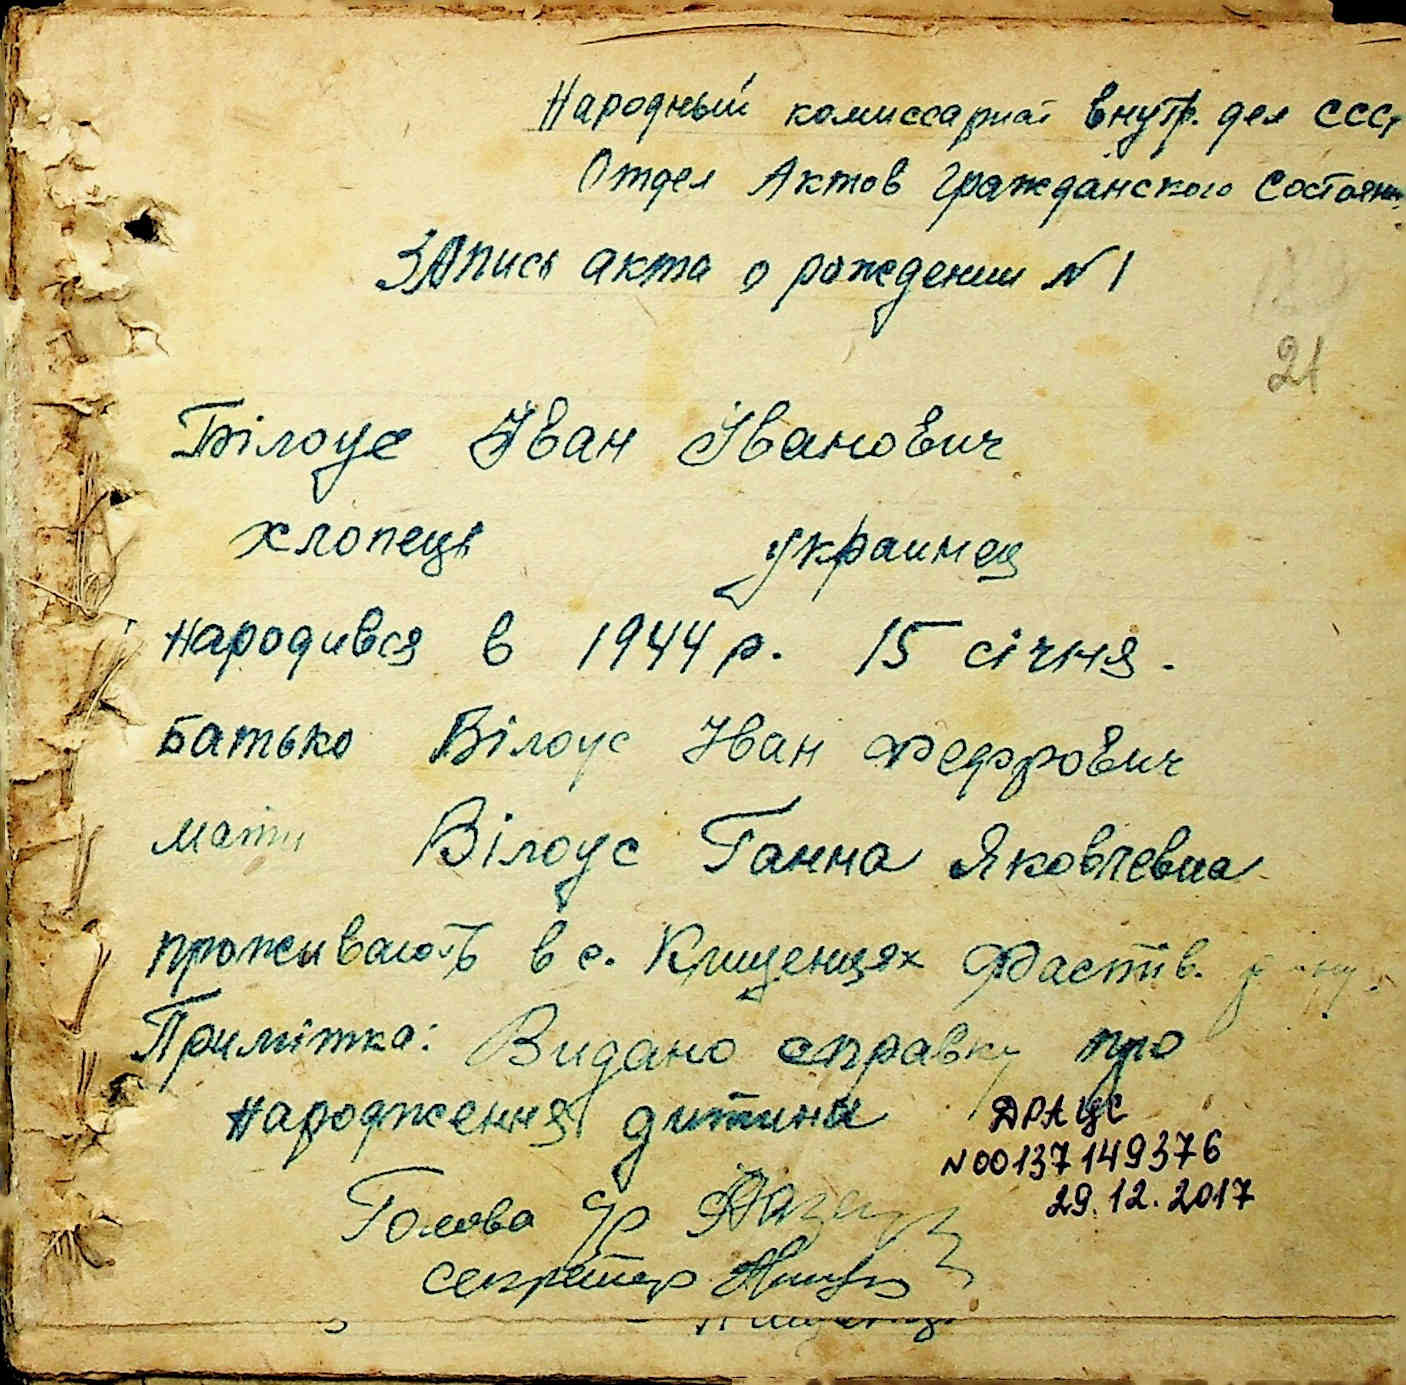 Народный комиссариат внутр. дел СССР
Отдел Актов Гражданского Состояни
ЗАпись акта о рождении N 1
21
Білоус Іван Іванович
хлопець украинец
народився в 1944 р. 15 січня.
Батько Білоус Іван Федорович
мати Білоус Ганна Яковлевна
проживають в с. Клищенцях Фастів.
Примітка: Видано справку про
народження дитини
ДРАЦС
N00137149376
29.12.2017
Голова с/р
секретар